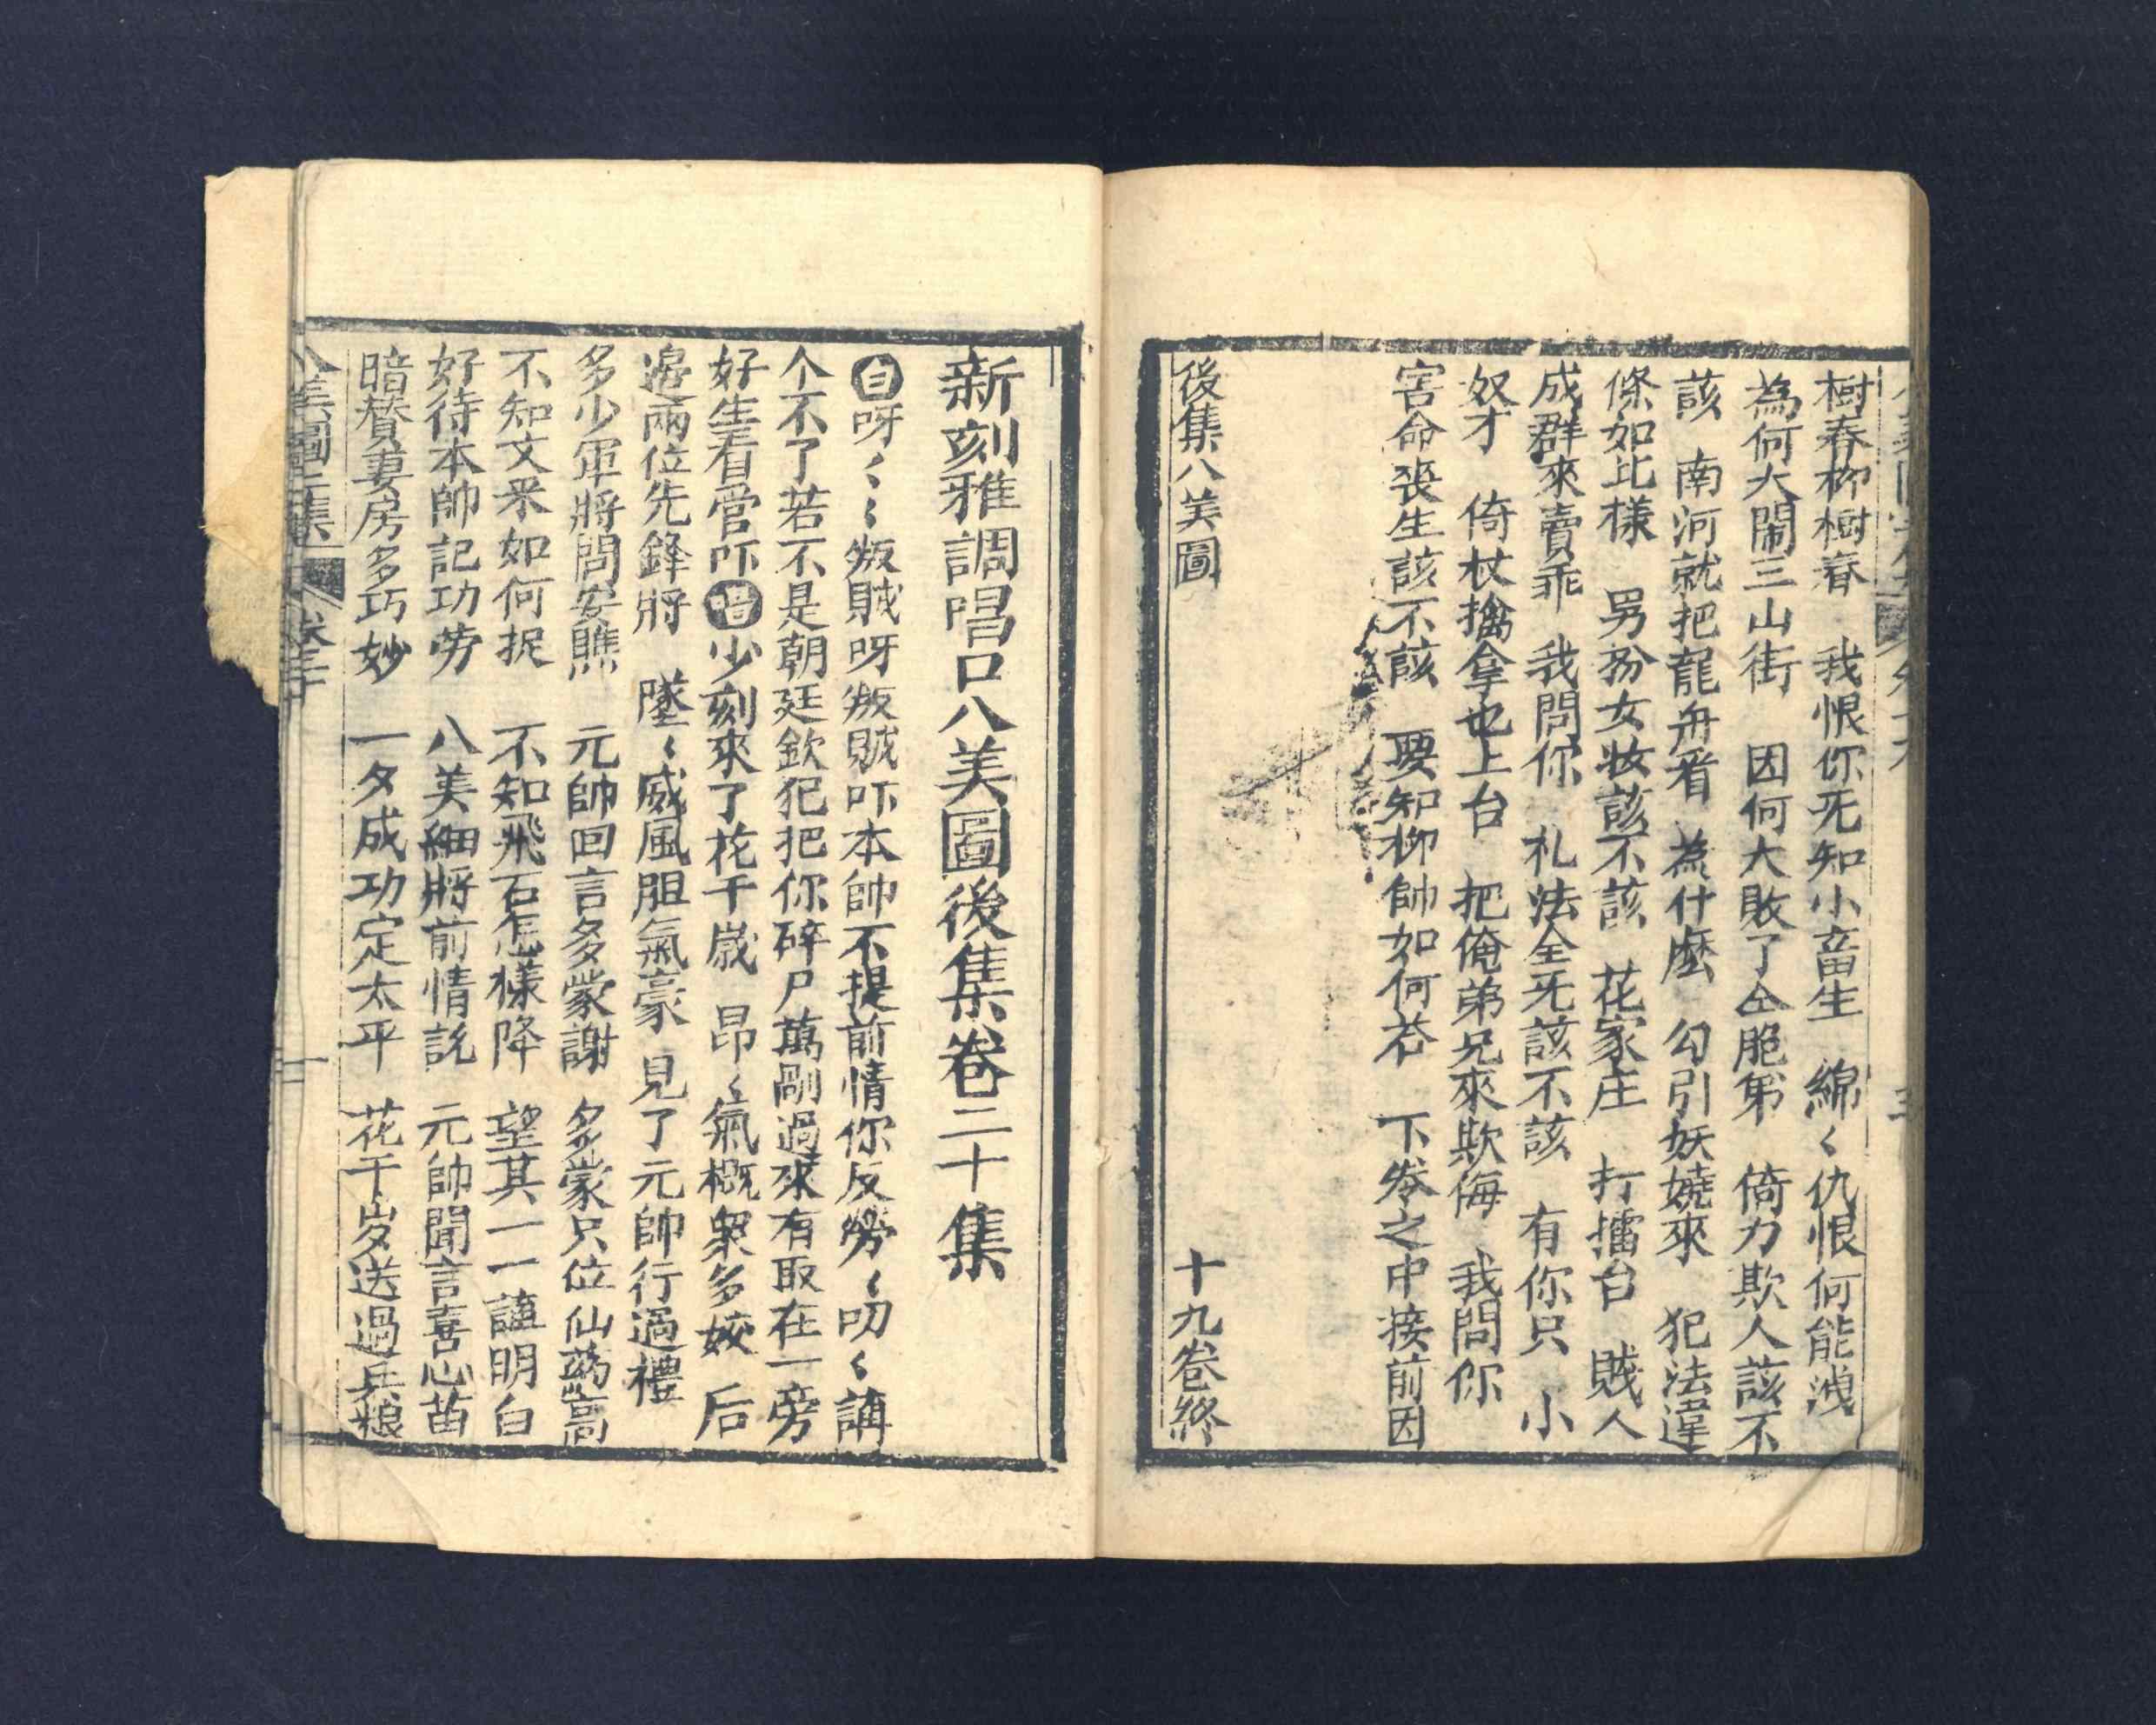 樹春柳樹春　我恨你死知小畜生　綿〱仇恨何能洩
為何大鬧三山街　因何大敗了仝胞弟　倚力欺人該不
該　南河就把龍舟看　為什麼　勾引妖嬈來　犯法違
條如比樣　男扮女妝該不該　花家庄　打擂台　賤人
成群來賣乖　我問你　札法全死該不該　有你只　小
奴才　倚杖擒拿也上台　把俺弟兄來欺侮　我問你
害命丧生該不該　要知柳帥如何荅　下卷之中接前因
後集八美圖　十九卷終
新刻雅調唱口八美圖後集卷二十集
白呀〱〱叛賊呀叛賊吓本帥不提前情你反嘮〱叨〱講
个不了若不是朝廷欽犯把你碎尸萬剮過來有取在一旁
好生看官吓唱少刻來了花千歲　昂〱氣概衆多姣　后
邉兩位先鋒將　墜〱威風胆氣豪　見了元帥行過禮
多少軍將問安瞧　元帥回言多蒙謝　多蒙只位仙蕩高
不知文釆如何捉　不知飛石怎樣降　望其一一講明白
好待本帥記功劳　八美細將前情説　元帥聞言喜心苗
暗賛妻房多巧妙　一夕成功定太平　花千岁送過兵粮
八美圖二集　卷二十　一